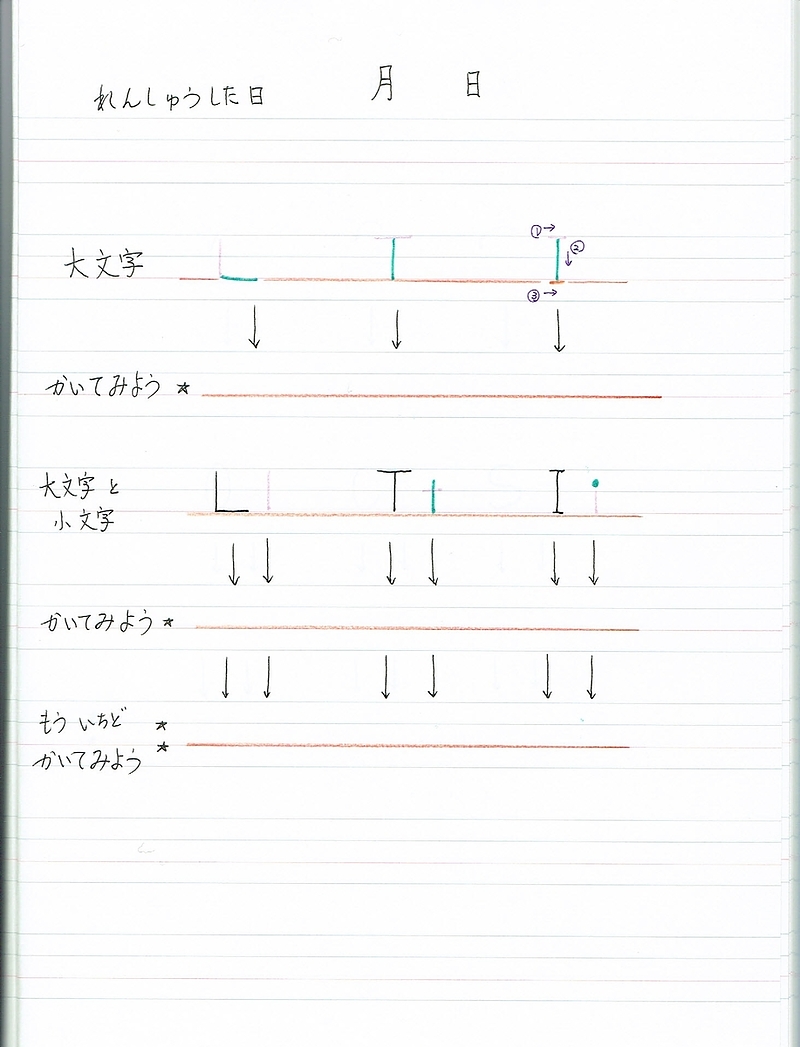 れんしゅうした日 月 日
大文字 L T I ①→ ②↓ ③→
↓ ↓ ↓
かいてみよう ★
大文字と L l T t I i
小文字
↓ ↓ ↓ ↓ ↓ ↓
かいてみよう ★
↓ ↓ ↓ ↓ ↓ ↓
もういちど ★
かいてみよう ★